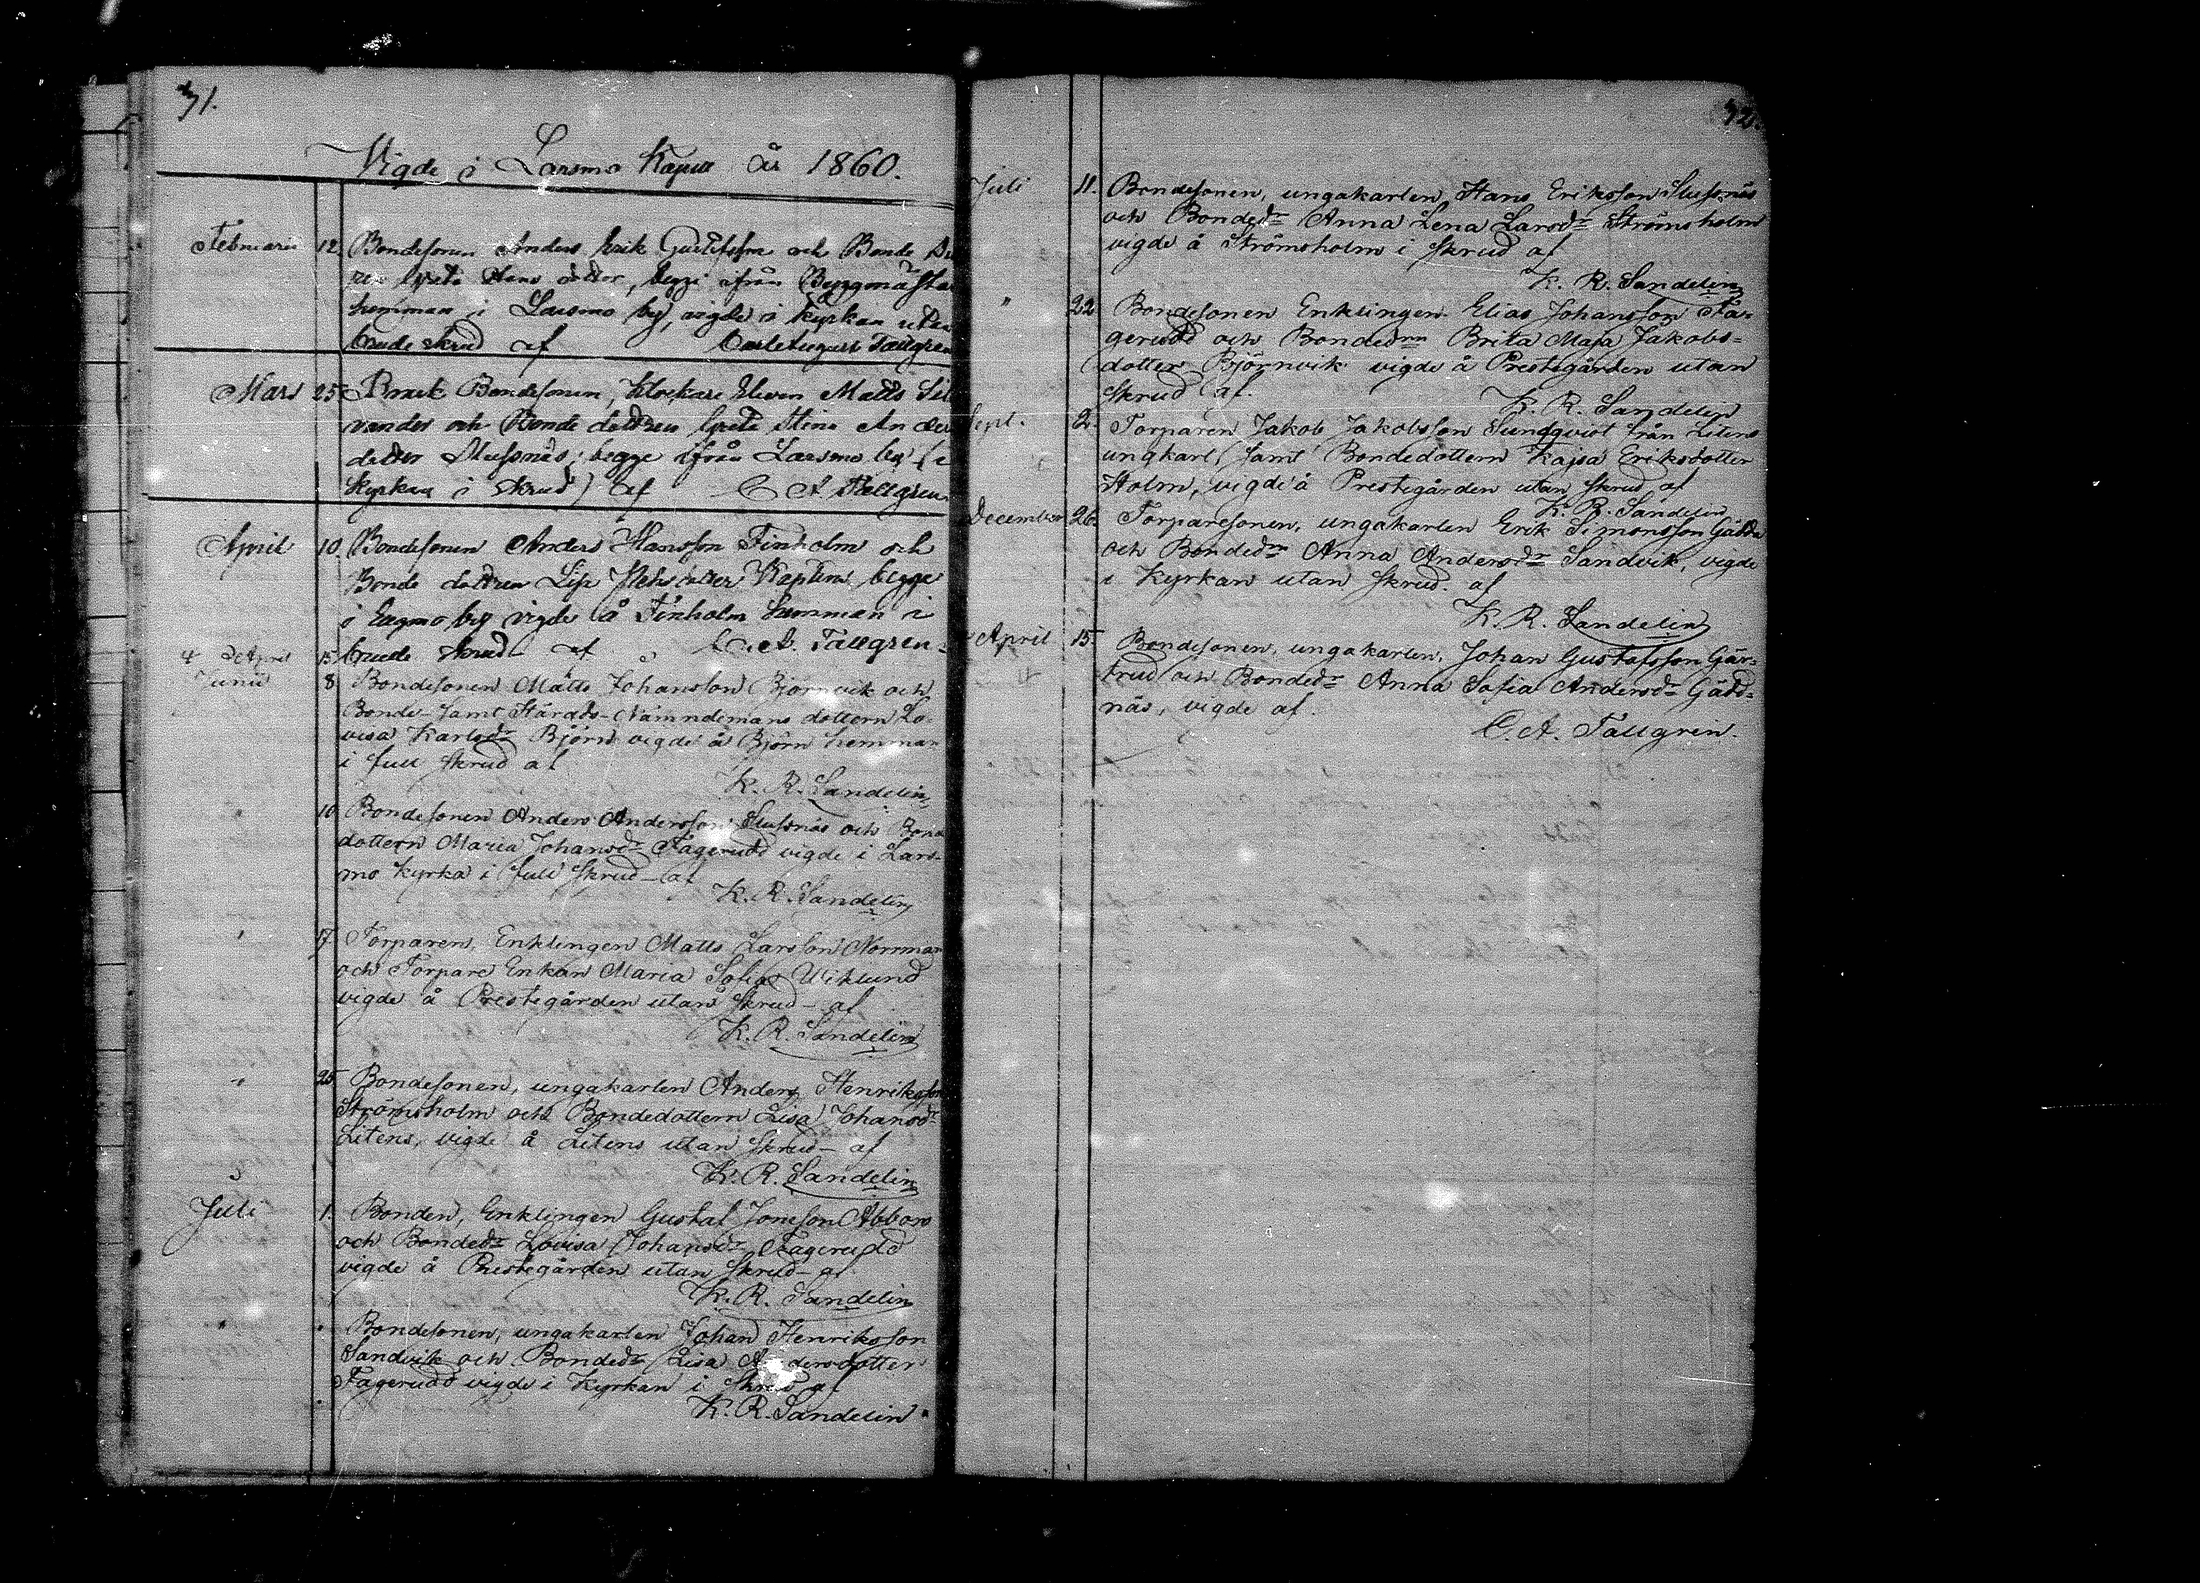 31.
Vigde i Larsmo Kapell år 1860.
Februari 12. Bondesonen Anders Erik Gustafsson och Bonde
Hans dotter, begge ifrån Byggmästar
hemman i Larsmo by, vigde i kyrkan utan
brudeskrud af Carl August Tallgren
Mars 25. Bondesonen, Klockare Eleven Matts
vander och Bonde dottren Greta Stina Anders
dotter Slussnäs, begge ifrån Larsmo by (i
Kyrkan i skrud) af C A Tallgren
April 10. Bondesonen Anders Hansson Finholm och
Bonde dottren Lisa dotter begge
i by vigde å Finholm hemman i
brude skrud af C. A. Tallgren
April 15
Junii 8 Bondesonen Matts Johansson Björnvik och
Bonde- samt Härads-Nämndemans dottern Lo-
visa Karlsdr Björn vigde å Björn hemman
i full skrud af
K. R. Sandelin
" 10 Bondesonen Anders Andersson Slussnäs och Bonde
dottern Maria Johansdr Fagerudd vigde i Lars-
mo Kyrka i full skrud af
K. R. Sandelin
" 17. Torparen, Enklingen Matts Larsson Norrman
och Torpare Enkan Maria Sofia Wiklund
vigde å Prestegården utan skrud - af
K. R. Sandelin
" 25 Bondesonen, ungakarlen Anders Henriksson
Strömsholm och Bondedottern Lisa Johansdr
Litens, vigde å Litens utan skrud - af
K. R. Sandelin
Juli 1. Bonden, Enklingen Gustaf Abbors
och Bondedr Lovisa Johansdr Fagerudd
vigde å Prestegården utan skrud - af
K. R. Sandelin
" " Bondesonen, ungakarlen Johan Henriksson
Sandvik och Bondedr Lisa Andersdotter
Fagerudd vigde i Kyrkan i skrud af
K. R. Sandelin
32.
Juli 11. Bondesonen, ungakarlen Hans Eriksson Slussnäs
och Bondedr Anna Lena Larsdr Strömsholm
vigde å Strömsholm i skrud af
K. R. Sandelin
" 22 Bondesonen Enklingen Elias Johansson Fa-
gerudd och Bondedrn Brita Maja Jakobs-
dotter Björnvik vigde å Prestegården utan
skrud af.
K. R. Sandelin
Sept. 2. Torparen Jakob Jakobsson Sundqvist från Litens
ungkarl, samt Bondedottern Kajsa Eriksdotter
Holm, vigde å Prestegården utan skrud af
K. R. Sandelin
December 26. Torparesonen, ungakarlen Erik Simonsson Gädda
och Bondedrn Anna Andersdr Sandvik, vigde
i Kyrkan utan skrud. af
K. R. Sandelin
April 15. Bondesonen, ungakarlen, Johan Gustafsson Gär-
trud och Bondedr Anna Sofia Andersdr Gädd-
näs, vigde af.
C. A. Tallgren.